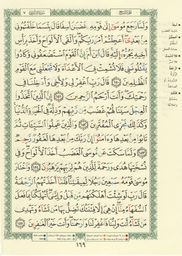 وَلَمَّا رَجَعَ مُوسَىٰ إِلَىٰ قَوْمِهِ غَضْبَانَ أَسِفًا قَالَ بِئْسَمَا خَلَفْتُمُونِي
مِن بَعْدِي أَعَجِلْتُمْ أَمْرَ رَبِّكُمْ وَأَلْقَى الْأَلْوَاحَ وَأَخَذَ بِرَأْسِ
أَخِيهِ يَجُرُّهُ إِلَيْهِ قَالَ ابْنَ أُمَّ إِنَّ الْقَوْمَ اسْتَضْعَفُونِي وَكَادُوا
يَقْتُلُونَنِي فَلَا تُشْمِتْ بِيَ الْأَعْدَاءَ وَلَا تَجْعَلْنِي مَعَ الْقَوْمِ
الظَّالِمِينَ ١٥٠ قَالَ رَبِّ اغْفِرْ لِي وَلِأَخِي وَأَدْخِلْنَا فِي
رَحْمَتِكَ وَأَنتَ أَرْحَمُ الرَّاحِمِينَ ١٥١ إِنَّ الَّذِينَ اتَّخَذُوا
الْعِجْلَ سَيَنَالُهُمْ غَضَبٌ مِّن رَّبِّهِمْ وَذِلَّةٌ فِي الْحَيَاةِ الدُّنْيَا
وَكَذَٰلِكَ نَجْزِي الْمُفْتَرِينَ ١٥٢ وَالَّذِينَ عَمِلُوا السَّيِّئَاتِ
ثُمَّ تَابُوا مِن بَعْدِهَا وَآمَنُوا إِنَّ رَبَّكَ مِن بَعْدِهَا لَغَفُورٌ رَّحِيمٌ
١٥٣ وَلَمَّا سَكَتَ عَن مُّوسَى الْغَضَبُ أَخَذَ الْأَلْوَاحَ وَفِي
نُسْخَتِهَا هُدًى وَرَحْمَةٌ لِّلَّذِينَ هُمْ لِرَبِّهِمْ يَرْهَبُونَ ١٥٤ وَاخْتَارَ
مُوسَىٰ قَوْمَهُ سَبْعِينَ رَجُلًا لِّمِيقَاتِنَا فَلَمَّا أَخَذَتْهُمُ الرَّجْفَةُ
قَالَ رَبِّ لَوْ شِئْتَ أَهْلَكْتَهُم مِّن قَبْلُ وَإِيَّايَ أَتُهْلِكُنَا بِمَا فَعَلَ
السُّفَهَاءُ مِنَّا إِنْ هِيَ إِلَّا فِتْنَتُكَ تُضِلُّ بِهَا مَن تَشَاءُ وَتَهْدِي
مَن تَشَاءُ أَنتَ وَلِيُّنَا فَاغْفِرْ لَنَا وَارْحَمْنَا وَأَنتَ خَيْرُ الْغَافِرِينَ ١٥٥
١٦٩